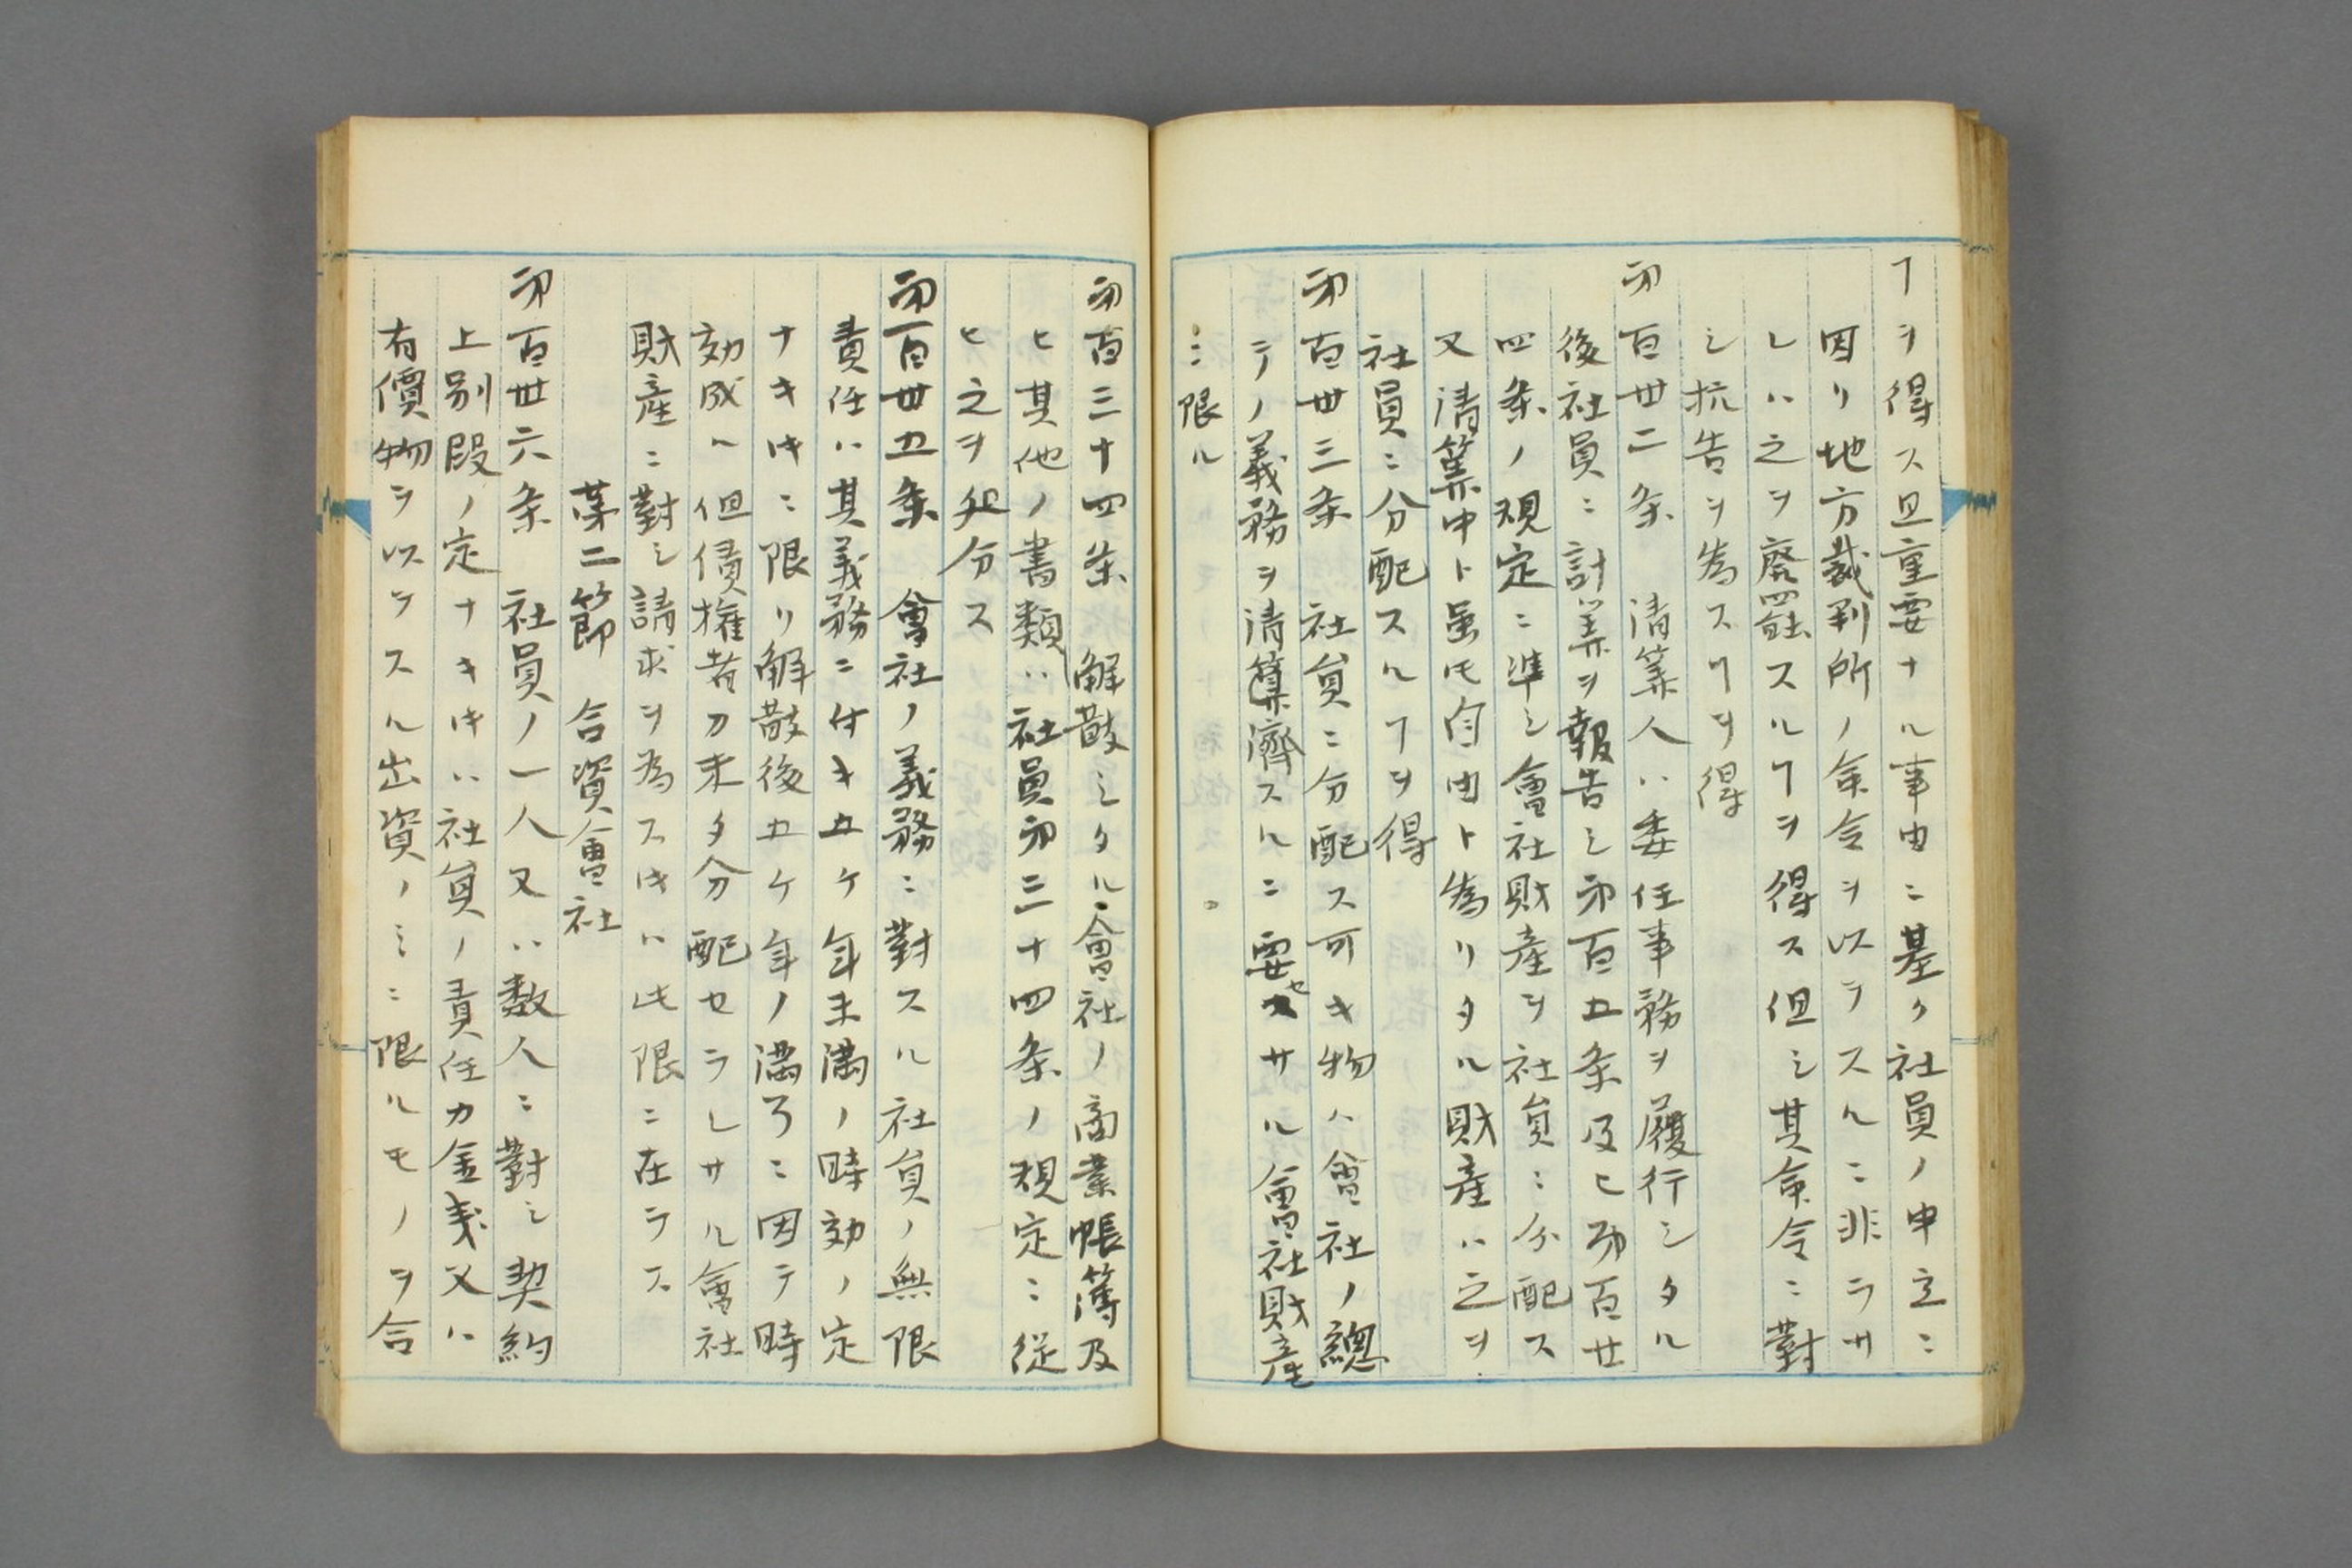 ヿヲ得ス且重要ナル事由ニ基ク社員ノ申立ニ
因リ地方裁判所ノ命令ヲ以テスルニ非ラサ
レハ之ヲ廃罷スルヿヲ得ス但シ其命令ニ對
シ抗告ヲ為スヿヲ得
㐧百丗二条 清算人ハ委任事務ヲ履行シタル
後社員ニ計算ヲ報告シ㐧百五条及ヒ㐧百廿
四条ノ規定ニ準シ會社財産ヲ社員ニ分配ス
又清算中ト虽𪜈自由ト為リタル財産ハ之ヲ
社員ニ分配スルヿヲ得
㐧百丗三条 社員ニ分配ス可キ物ハ會社ノ總
テノ義務ヲ清算濟スルニ要セサル會社財産
ニ限ル
㐧百三十四条 解散シタル會社ノ商業帳簿及
ヒ其他ノ書類ハ社員㐧三十四条ノ規定ニ従
ヒ之ヲ処分ス
㐧百丗五条 會社ノ義務ニ對スル社員ノ無限
責任ハ其義務ニ付キ五ケ年未満ノ時効ノ定
ナキ𪜈ニ限リ解散後五ケ年ノ満了ニ因テ時
効成ル但債権者カ未タ分配セラレサル會社
財産ニ對シ請求ヲ為ス𪜈ハ此限ニ在ラス
第二節 合資會社
㐧百丗六条 社員ノ一人又ハ数人ニ對シ契約
上別段ノ定ナキ𪜈ハ社員ノ責任カ金銭又ハ
有價物ヲ以テスル出資ノミニ限ルモノヲ合